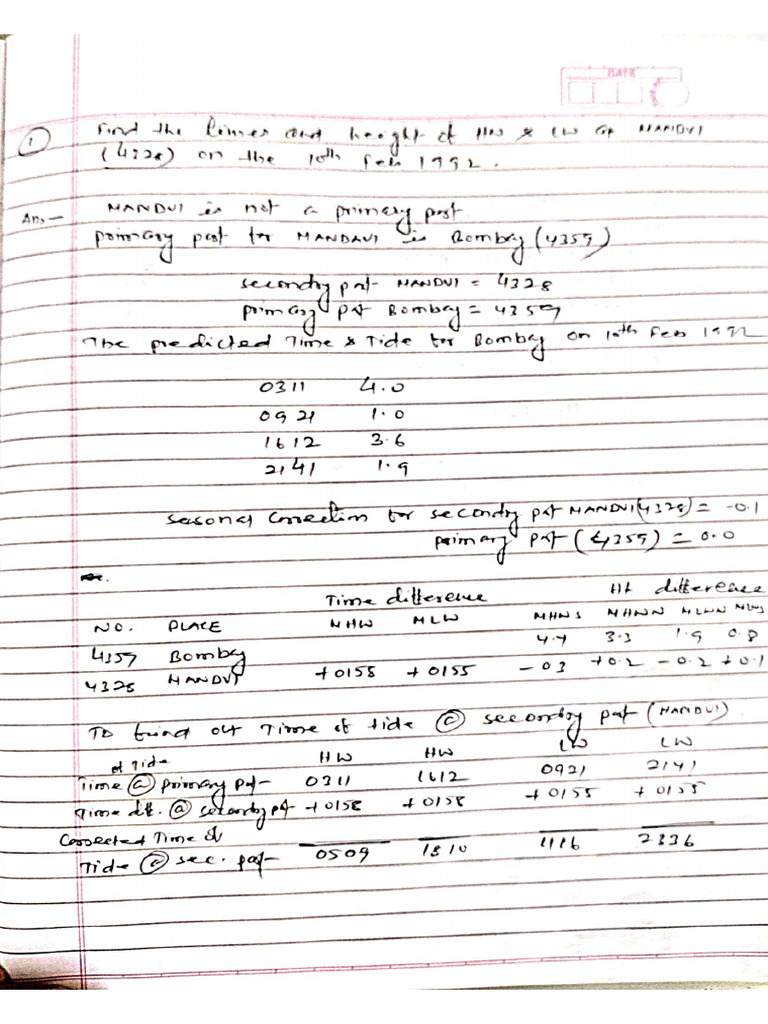 DATE
① Find the times and height of HW & LW at MANDVI
(4328) on the 10th Feb 1992.
Ans- MANDVI is not a primary port
primary port for MANDAVI is Bombay (4359)
secondry port MANDVI = 4328
primary port Bombay = 4359
The predicted Time & Tide for Bombay on 10th Feb 1992
0311 4.0
0921 1.0
1612 3.6
2141 1.9
seasonal correction for secondry port MANDVI(4328) = -0.1
primary port (4359) = 0.0
Time difference Ht difference
NO. PLACE MHW MLW MHWS MHWN MLWN MLWS
4359 Bombay 4.4 3.3 1.9 0.8
4328 MANDVI +0158 +0155 -03 +0.2 -0.2 +0.1
To find out Time of tide @ secondry port (MANDVI).
of Tide HW HW LW LW
Time @ primary port- 0311 1612 0921 2141
Time diff. @ secondry port +0158 +0158 +0155 +0155
Corrected Time of
Tide @ sec. port- 0509 1810 1116 2336